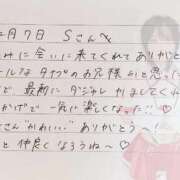 月7日 Sさんへ
みに会いに来てくれてありがと
ールな タイプのお兄様かと思った
ど、最後に ダジャレ かましてくれ
かげで 一気に楽しくなった!!♡
さん"かわいい" ありがとう〜
と 仲良くなろうね〜♡